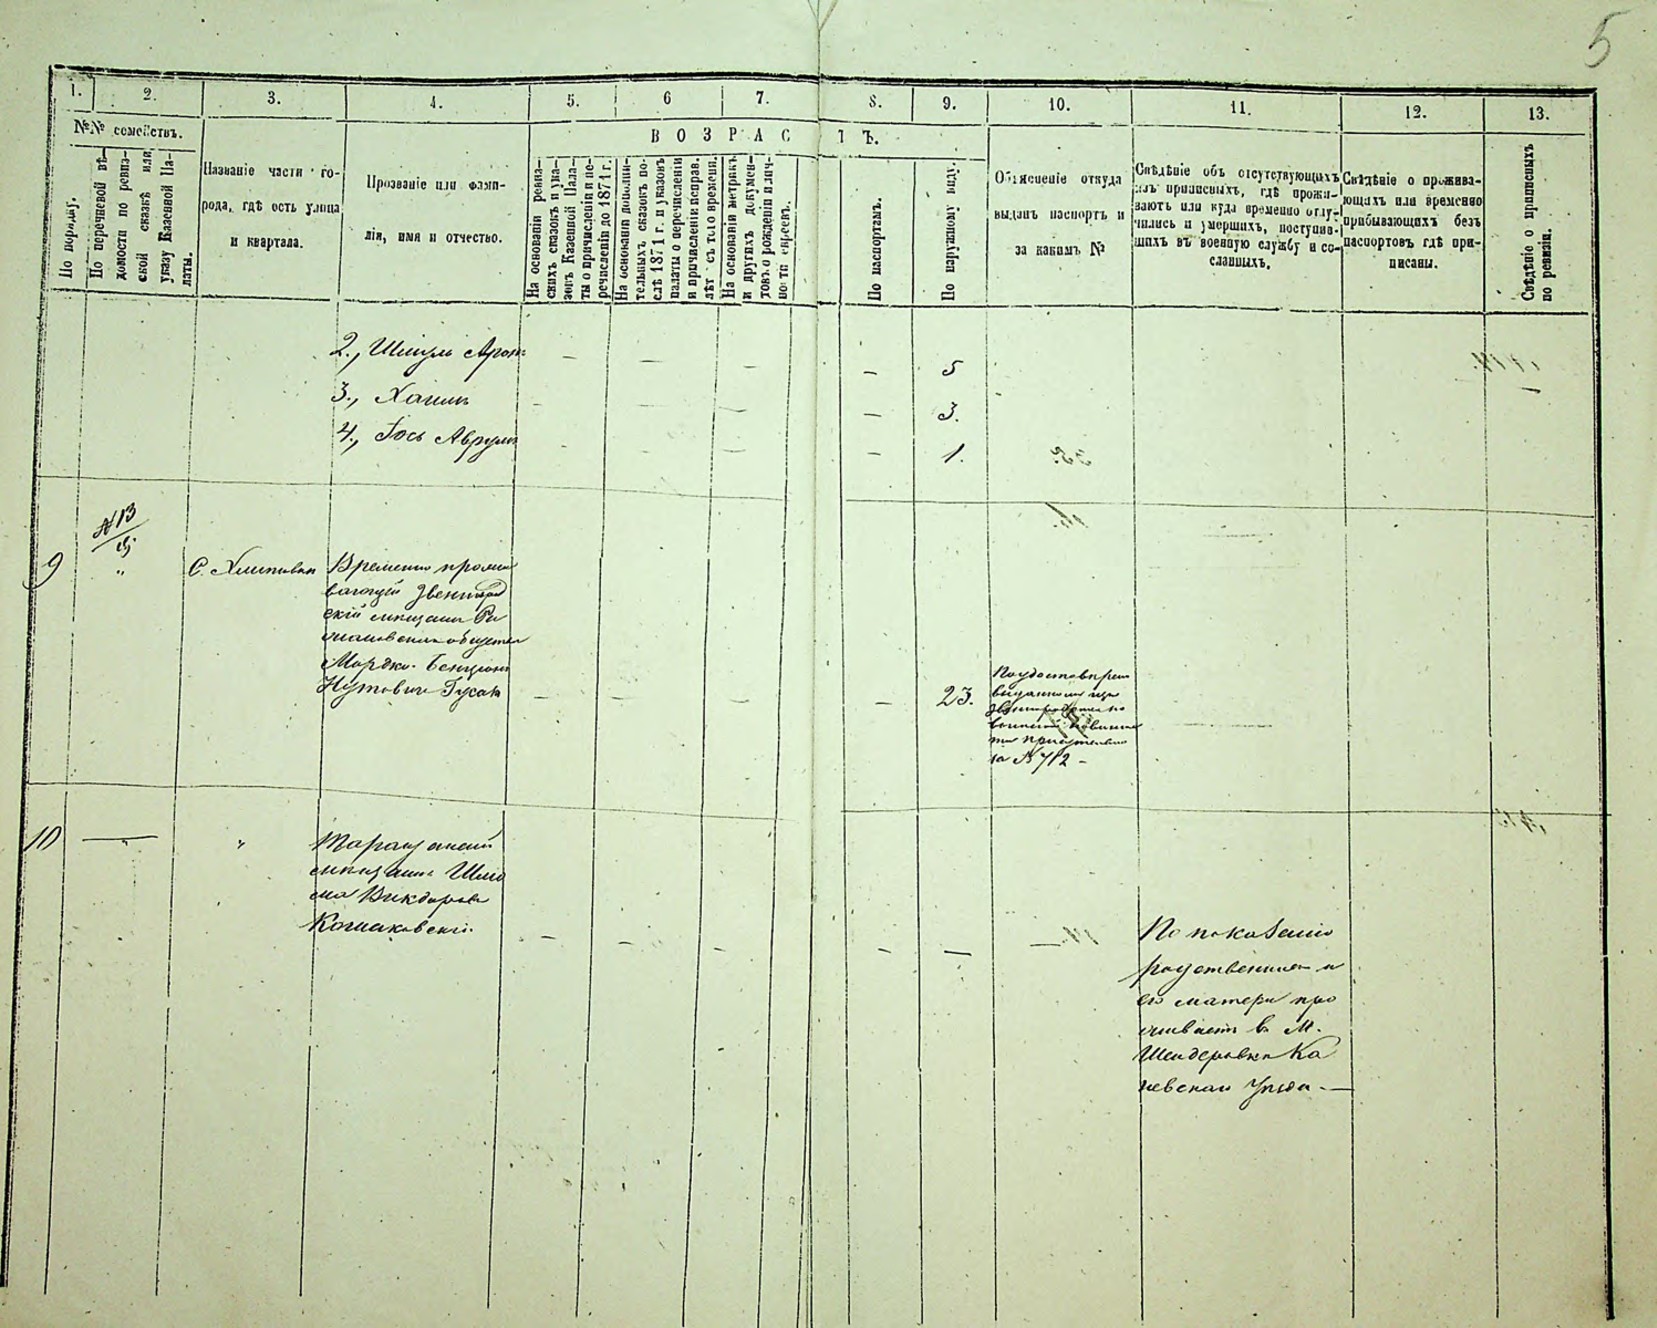 5
1. 2. 3. 4. 5. 6 7. 8. 9. 10. 11. 12. 13.
№№ семействъ.
По порядку.
По перечневой вѣ-
домости по ревиз-
ской сказкѣ или
указу Казенной Па-
латы.
Названіе части го-
рода, гдѣ есть улица
и квартала.
Прозваніе или фами-
лія, имя и отчество.
ВОЗРАСТЪ.
На основаніи ревиз-
скихъ сказокъ и ука-
зовъ Казенной Пала-
ты о причисленіи и пе-
речисленіи до 1871 г.
На основаніи дополни-
тельныхъ сказокъ по-
слѣ 1871 г. и указовъ
палаты о перечисленіи
и причисленіи исправ.
лѣт съ того времени.
На основаніи метрикъ
и другихъ докумен-
товъ о рожденіи и лич-
ности евреевъ.
По паспортамъ.
По наружному виду.
Объясненіе откуда
выданъ паспортъ и
за какимъ №
Свѣдѣніе объ отсутствующихъ
изъ приписныхъ, гдѣ прожи-
ваютъ или куда временно отлу-
чились и умершихъ, поступив-
шихъ въ военную службу и со-
сланныхъ.
Свѣдѣніе о прожива-
ющихъ или временно
прибывающихъ безъ
паспортовъ гдѣ при-
писаны.
Свѣдѣніе о приписныхъ
по ревизіи.
2., Шмуль Аронъ — — — — 5
3., Хаимъ — — — — 3.
4., Іось Аврумъ — — — — 1.
№ 13
9 " С. Хлиповка Временно прожи
вающій Звенигород
скій мѣщанин
Мордко-Бенціонъ
Нутовичъ Гусакъ — — — — 23.
По удостовѣрен
выданному изъ
воинской повинно
ти присутствія
за № 712 —
10 — " Таращанскій
мѣщанинъ Шлио
ма Викдоровъ
Кошаковскій. — — — — — —
По показанію
родственниковъ и
его матери про
живаетъ въ М.
Шендеровкѣ Ка
невскаго Уѣзда. —